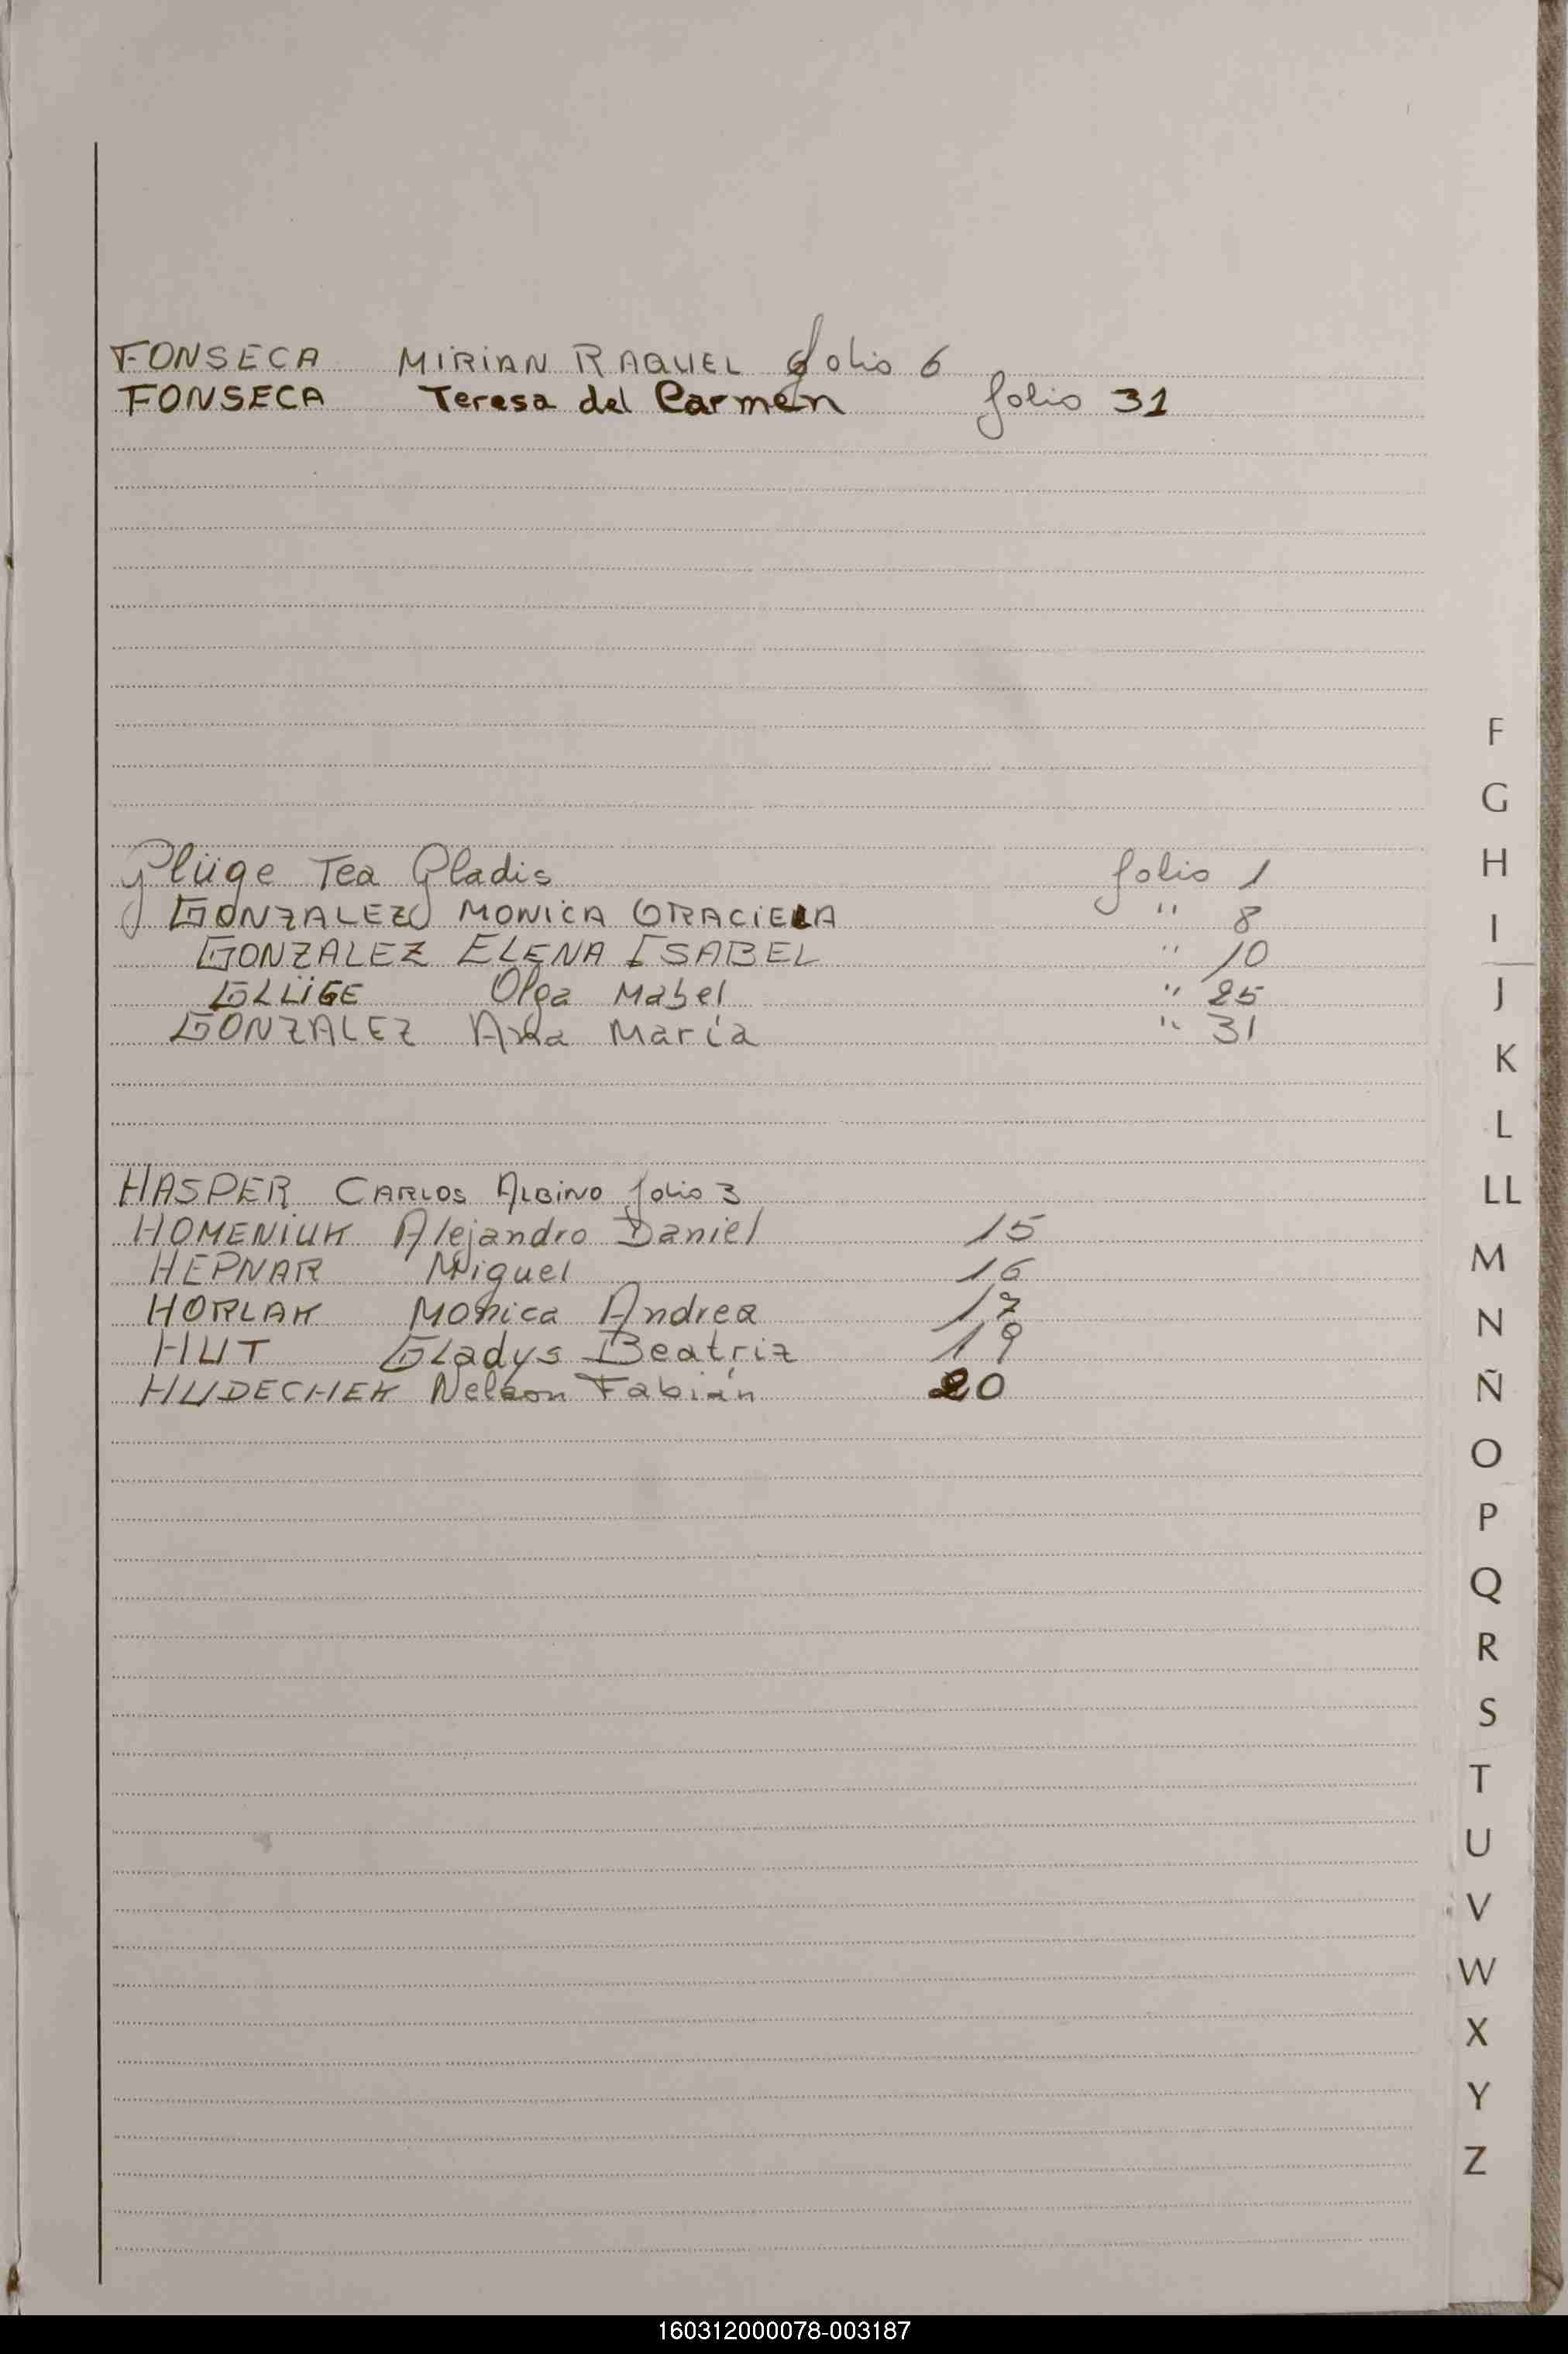 FONSECA MIRIAN RAQUEL folio 6
FONSECA Teresa del Carmen folio 31
Glüge Tea Gladis folio 1
GONZALEZ MONICA GRACIELA " 8
GONZALEZ ELENA ISABEL " 10
GLÜGE Olga Mabel " 25
GONZALEZ Ana María " 31
HASPER CARLOS ALBINO folio 3
HOMENIUK Alejandro Daniel 15
HEPNAR Miguel 16
HORLAK Monica Andrea 17
HUT Gladys Beatriz 19
HUDECHEK Nelson Fabián 20
F
G
H
I
J
K
L
LL
M
N
Ñ
O
P
Q
R
S
T
U
V
W
X
Y
Z
160312000078-003187